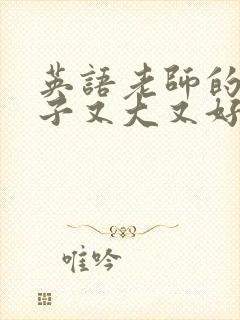 英語老師的
子又大又好
唯吟